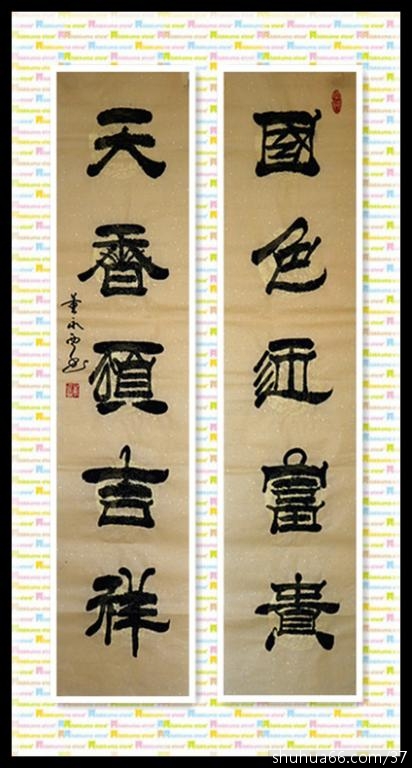 國色富貴
天香吉祥
董永西
shuhua66.com/37